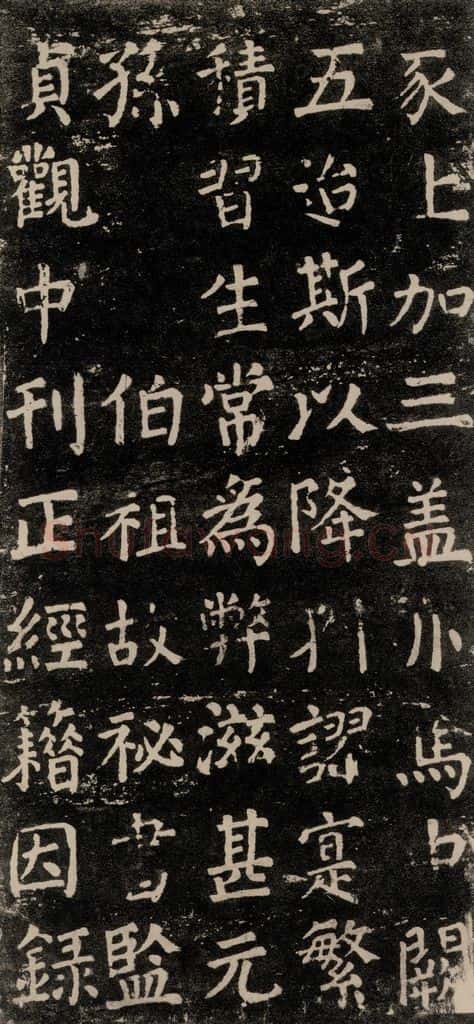 豕上加三盖馬闕
五迨斯以降謬寔繁
積習生常為弊滋甚元
孫 伯祖故祕書監
貞觀中刊正經籍因録
shufawang.cn